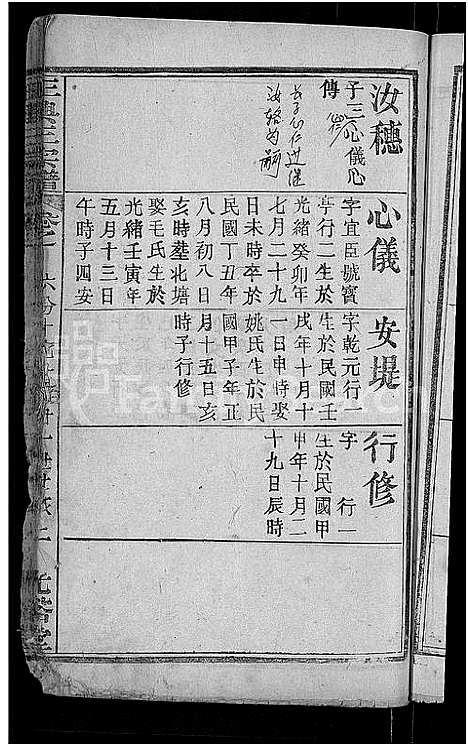 汝穗
子三心儀心
傳
汝輅為嗣
心儀
字宜臣號賓
亭行二生於
光緒癸卯年
七月二十九
日未時卒於
民國丁丑年
八月初八日
亥時塟北塘
娶毛氏生於
光緒壬寅年
五月十三日
午時子四安
安堤
字乾元行一
生於民國壬
戌年十月十
一日申時娶
姚氏生於民
國甲子年正
月十五日亥
時子行修
行修
字 行一
生於民國甲
申年十月二
十九日辰時